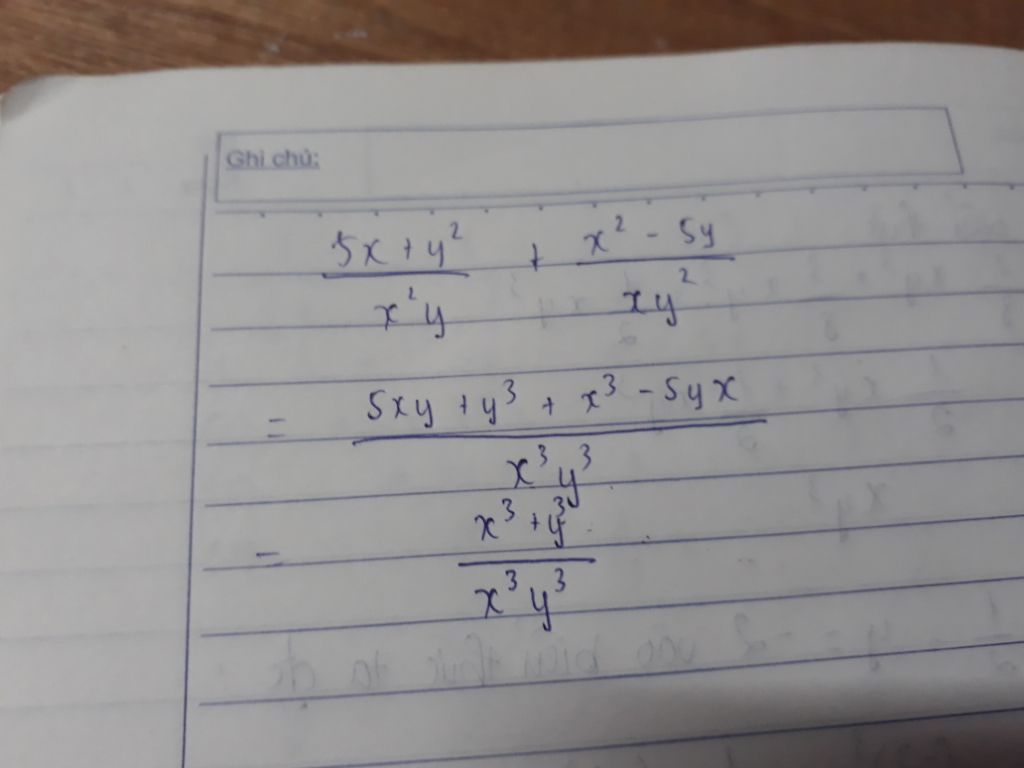 Ghi chú:
5x + y² / x²y + x² - 5y / xy²
= 5xy + y³ + x³ - 5yx / x³y³
= x³ + y³ / x³y³